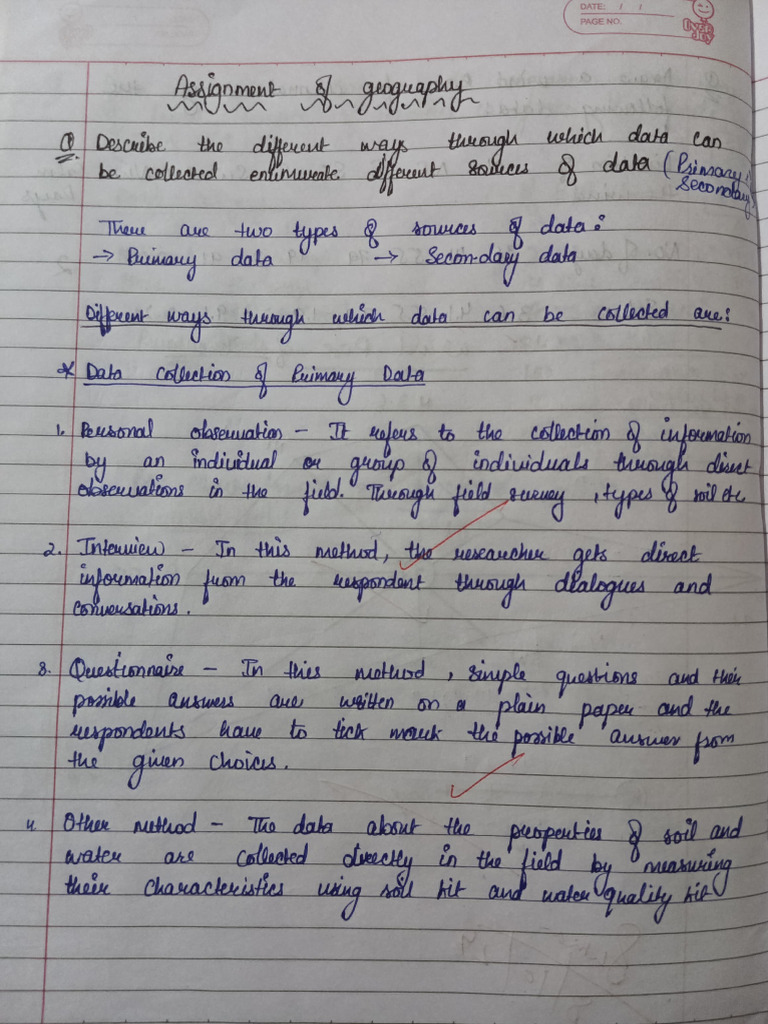 DATE: / /
PAGE NO.
Assignment of geography
Q Describe the different ways through which data can
be collected enumurate different sources of data (Primary,
Secondary)
There are two types of sources of data:
→ Primary data → Secon-dary data
Different ways through which data can be collected are:
* Data Collection of Primary Data
1. Personal observation – It refers to the collection of information
by an individual or group of individuals through direct
observations in the field. Through field survey, types of soil etc
2. Interview – In this method, the researcher gets direct
information from the respondent through dialogues and
conversations.
3. Questionnaire – In this method, simple questions and their
possible answers are written on a plain paper and the
respondents have to tick mark the possible answer from
the given choices.
4. Other method – The data about the properties of soil and
water are collected directly in the field by measuring
their characteristics using soil kit and water quality kit